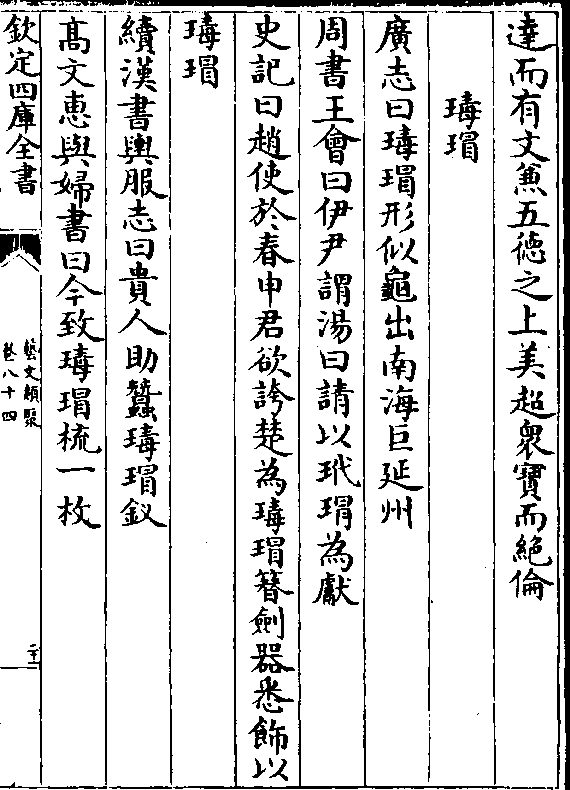 達而有文兼五德之上美超衆寳而絶倫
瑇瑁
廣志曰瑇瑁形似龜出南海巨延州
周書王會曰伊尹謂湯曰請以玳瑁為獻
史記曰趙使於春申君欲誇楚為瑇瑁簪劍器悉飾以
瑇瑁
續漢書輿服志曰貴人助蠶瑇瑁釵
髙文惠與婦書曰今致瑇瑁梳一枚
欽定四庫全書
藝文類聚
卷八十四
二十一